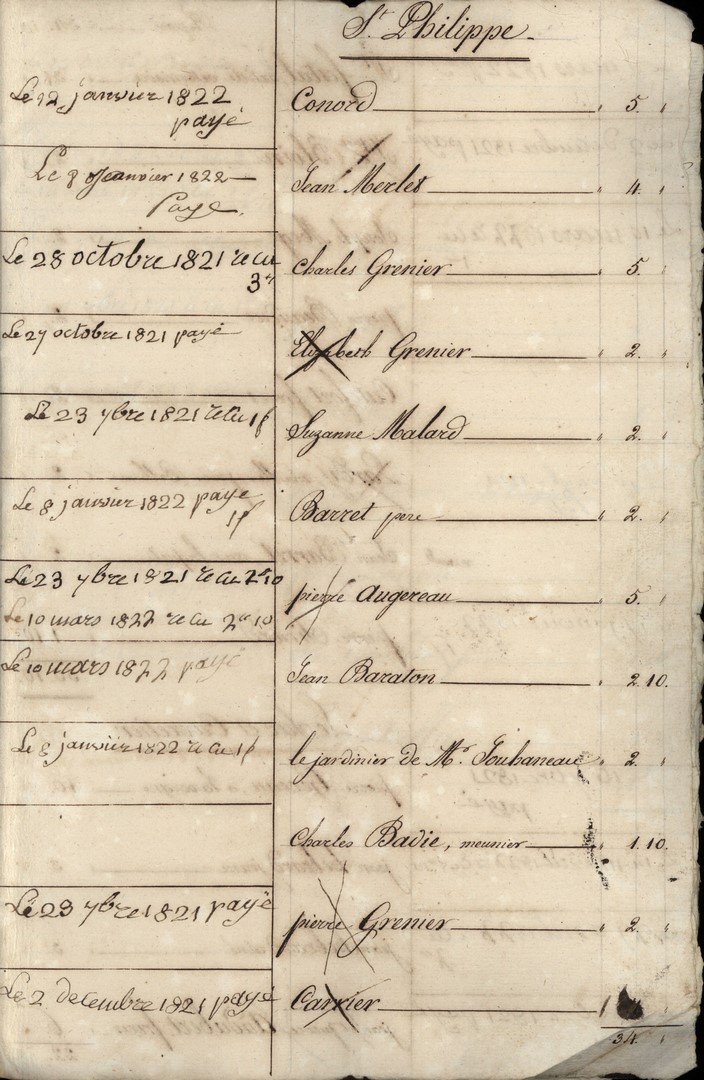 St Philippe
Le 12 janvier 1822
payé
Conord " 5. "
Le 8 Jeanvier 1822
Payé.
Jean Merlet " 4. "
Le 28 octobre 1821 recu
3#
Charles Grenier " 5. "
Le 27 octobre 1821 payé
Elizabeth Grenier " 2. "
Le 23 ybre 1821 recu 1f
Suzanne Malard " 2. "
Le 8 janvier 1822 payé
1f
Barret pere " 2. "
Le 23 ybre 1821 recu 2# 10
Le 10 mars 1822 recu 2# 10
pierre Augereau " 5. "
Le 10 mars 1822 payé
Jean Baraton " 2. 10.
Le 8 janvier 1822 recu 1f
le jardinier de Mr. Joubaneau 2. "
Charles Badie, meunier " 1. 10.
Le 23 ybre 1821 payé
pierre Grenier " 2. "
Le 2 decembre 1821 payé
Carrier
34. "